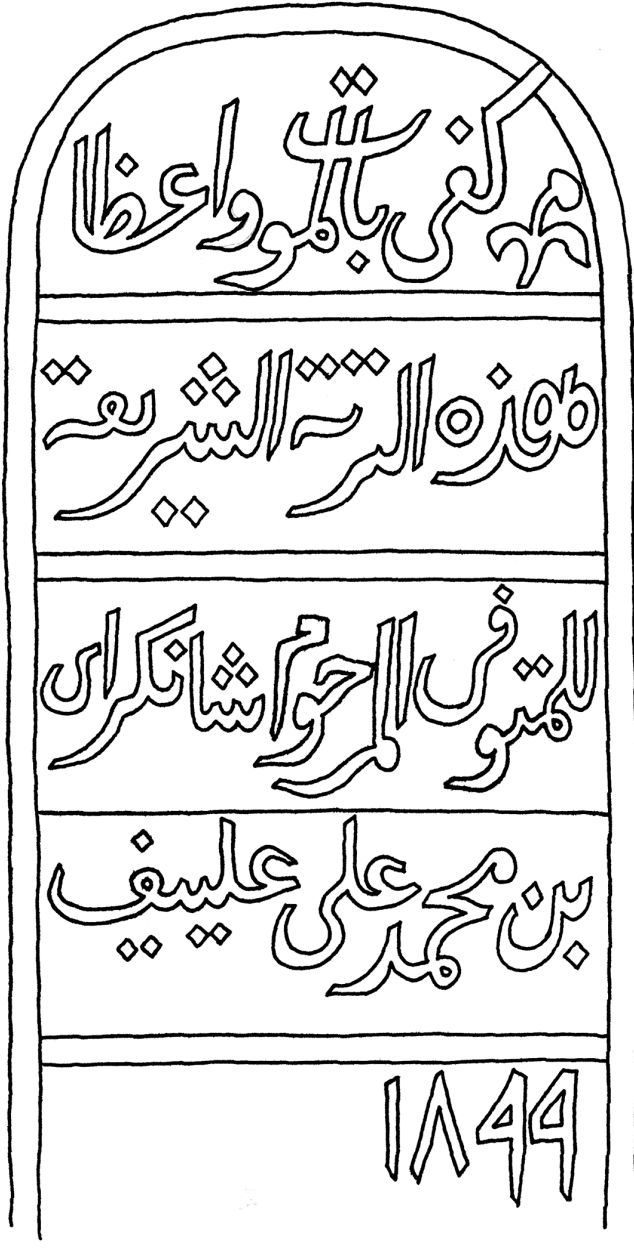 كفى بالموت واعظا
هوذه التربة الشريفة
للمتوفى المرحوم شانكراى
بن محمد على علييف
١٨٩٩